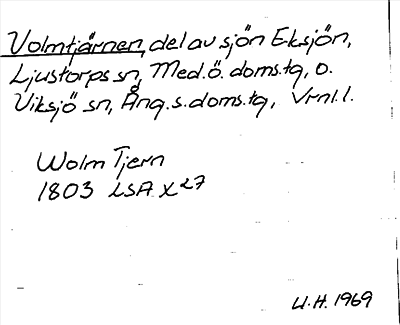 Volmtjärnen, del av sjön Eksjön,
Ljustorps sn, Med.ö. doms.tg, o.
Viksjö sn, Ång.s.doms.tg, Vrnl.l.
Wolm Tjern
1803 LSA X27
U.H. 1969